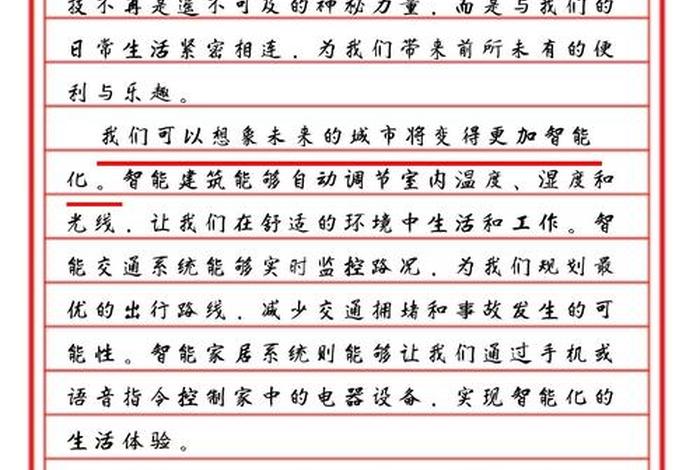 技不再是遥不可及的神秘力量，而是与我们的
日常生活紧密相连，为我们带来前所未有的便
利与乐趣。
我们可以想象未来的城市将变得更加智能
化。智能建筑能够自动调节室内温度、湿度和
光线，让我们在舒适的环境中生活和工作。智
能交通系统能够实时监控路况，为我们规划最
优的出行路线，减少交通拥堵和事故发生的可
能性。智能家居系统则能够让我们通过手机或
语音指令控制家中的电器设备，实现智能化的
生活体验。